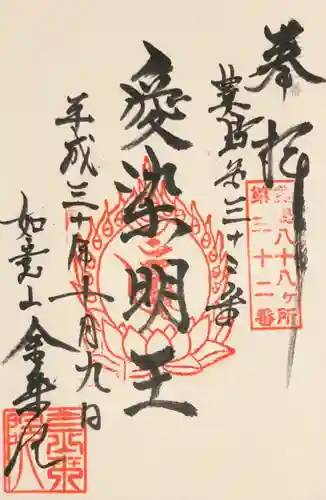 奉拝
豊島八十八ヶ所
第三十二番
豊島第三十二番
愛染明王
平成三十年十月九日
如意山 金乗院